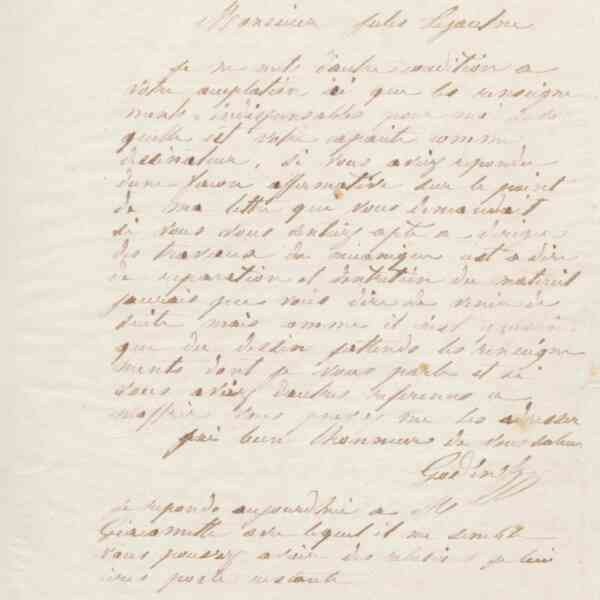 Monsieur Jules
je ne mets d'autre condition a
votre acceptation ici que les renseigne
ments indispensables pour moi
quelle est votre capacité comme
dessinateur, si vous aviez repondu
dune facon affirmative sur le point
de ma lettre que vous demandait
si vous vous sentiez apte a
des travaux de mécanique est a dire
de reparation et dentretien du materiel
jaurais pu vous dire de venir de
suite mais comme il n'est question
que du dessin jattends les renseigne
ments dont je vous parle et si
vous aviez dautres references a
moffrir vous pouvez me les adresser
jai bien lhonneur de vous saluer
Godin
je reponds aujourdhui a M
avec lequel il me semble
vous pouvez avoir des relations je lui
poste restante